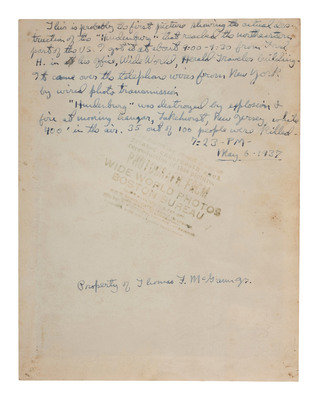 This is probably the first picture showing the actual des-
truction of the "Hindenburg" that reached the northeastern
part of the U.S. I got it at about 9:00-9:30 from
H. in his office, Wide World, Herald Traveler building-
It came over the telephone wires from New York
by wired photo transmission
"Hindenburg" was destroyed by explosion &
fire at mooring hangar, Lakehurst, New Jersey, while
400' in the air. 35 out of 100 people were killed-
7:23-PM-
May 6-1937
PHOTOGRAPH FROM
WIDE WORLD PHOTOS
BOSTON BUREAU
Property of Thomas F.